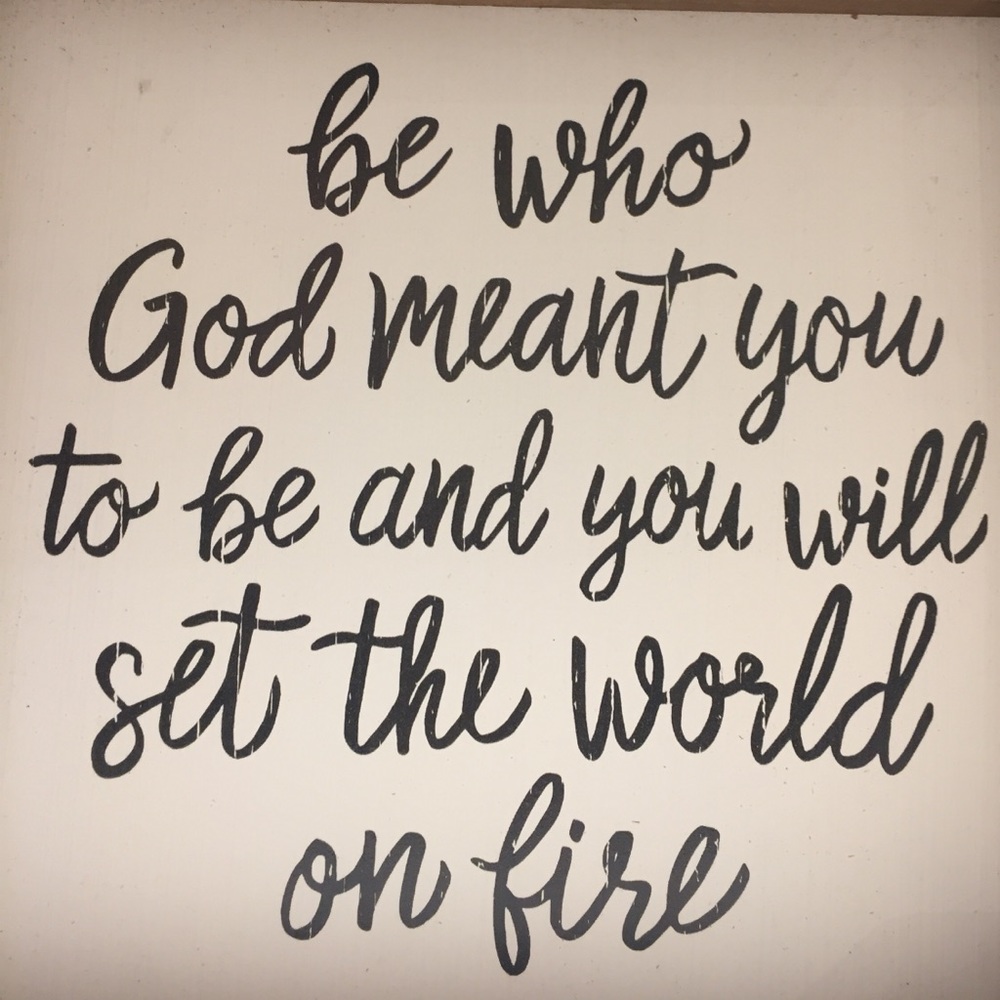 be who
God meant you
to be and you will
set the world
on fire